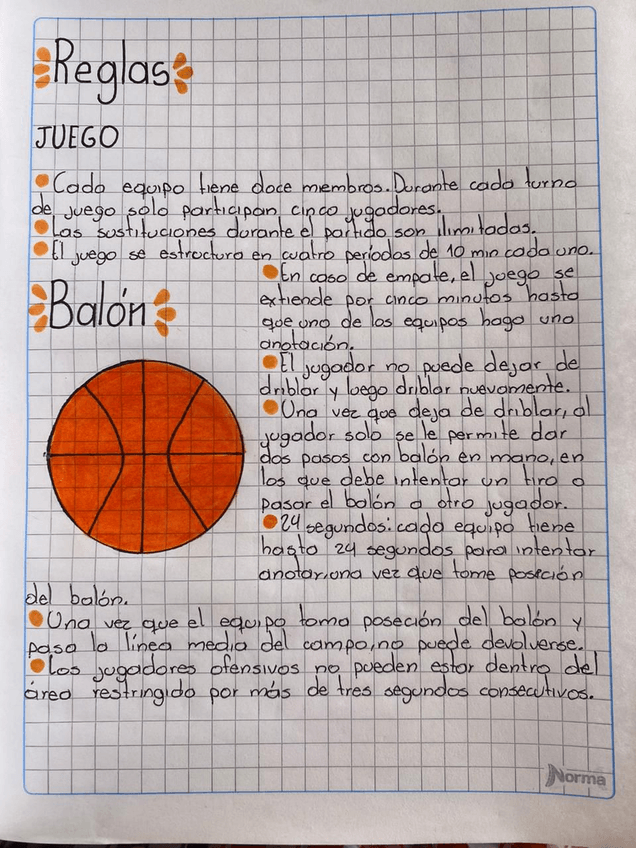 Reglas
JUEGO
Cada equipo tiene doce miembros. Durante cada turno
de juego sólo participan cinco jugadores.
Las sustituciones durante el partido son ilimitadas.
El juego se estructura en cuatro períodos de 10 min cada uno.
Balón
En caso de empate, el juego se
extiende por cinco minutos hasta
que uno de los equipos haga una
anotación.
El jugador no puede dejar de
driblar y luego driblar nuevamente.
Una vez que deja de driblar, al
jugador solo se le permite dar
dos pasos con balón en mano, en
los que debe intentar un tiro o
pasar el balón a otro jugador.
24 segundos: cada equipo tiene
hasta 24 segundos para intentar
anotar, una vez que tome poseción
del balón.
Una vez que el equipo toma poseción del balón y
pasa la línea media del campo, no puede devolverse.
Los jugadores ofensivos no pueden estar dentro del
área restringido por más de tres segundos consecutivos.
Norma